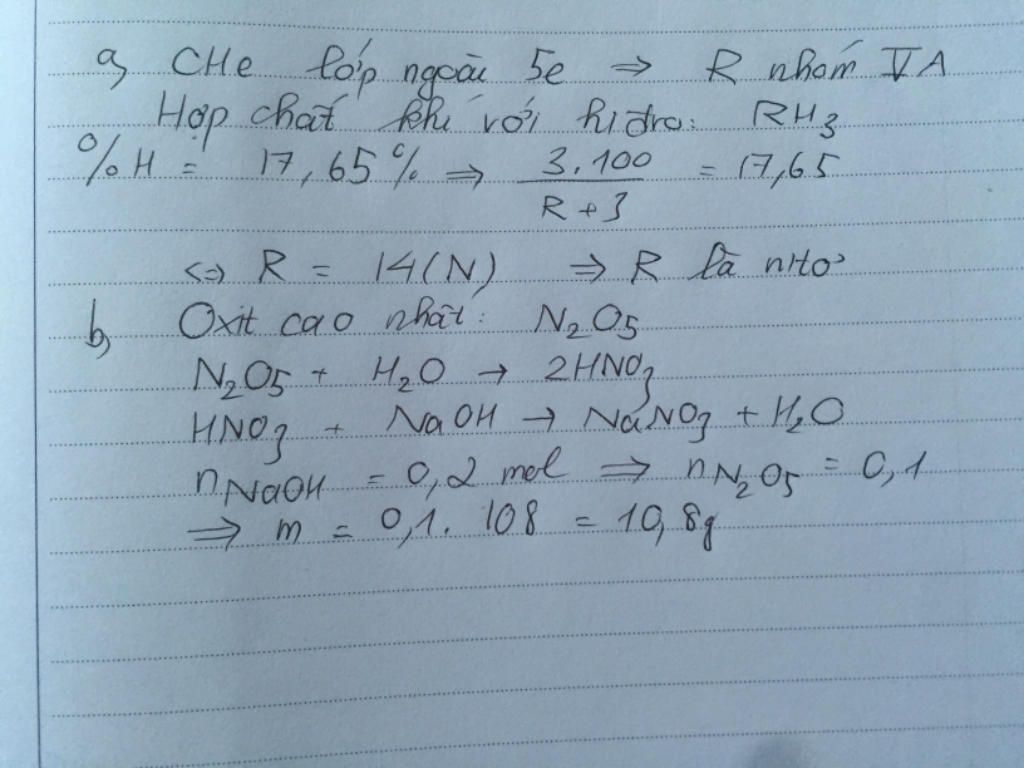 a, CHe lớp ngoài 5e ⇒ R nhóm VA
Hợp chất khí với hiđro: RH₃
%H = 17,65% ⇒ 3.100 / R+3 = 17,65
<=> R = 14(N) ⇒ R là nitơ
b, Oxit cao nhất: N₂O₅
N₂O₅ + H₂O → 2HNO₃
HNO₃ + NaOH → NaNO₃ + H₂O
nNaOH = 0,2 mol ⇒ nN₂O₅ = 0,1
⇒ m = 0,1. 108 = 10,8g